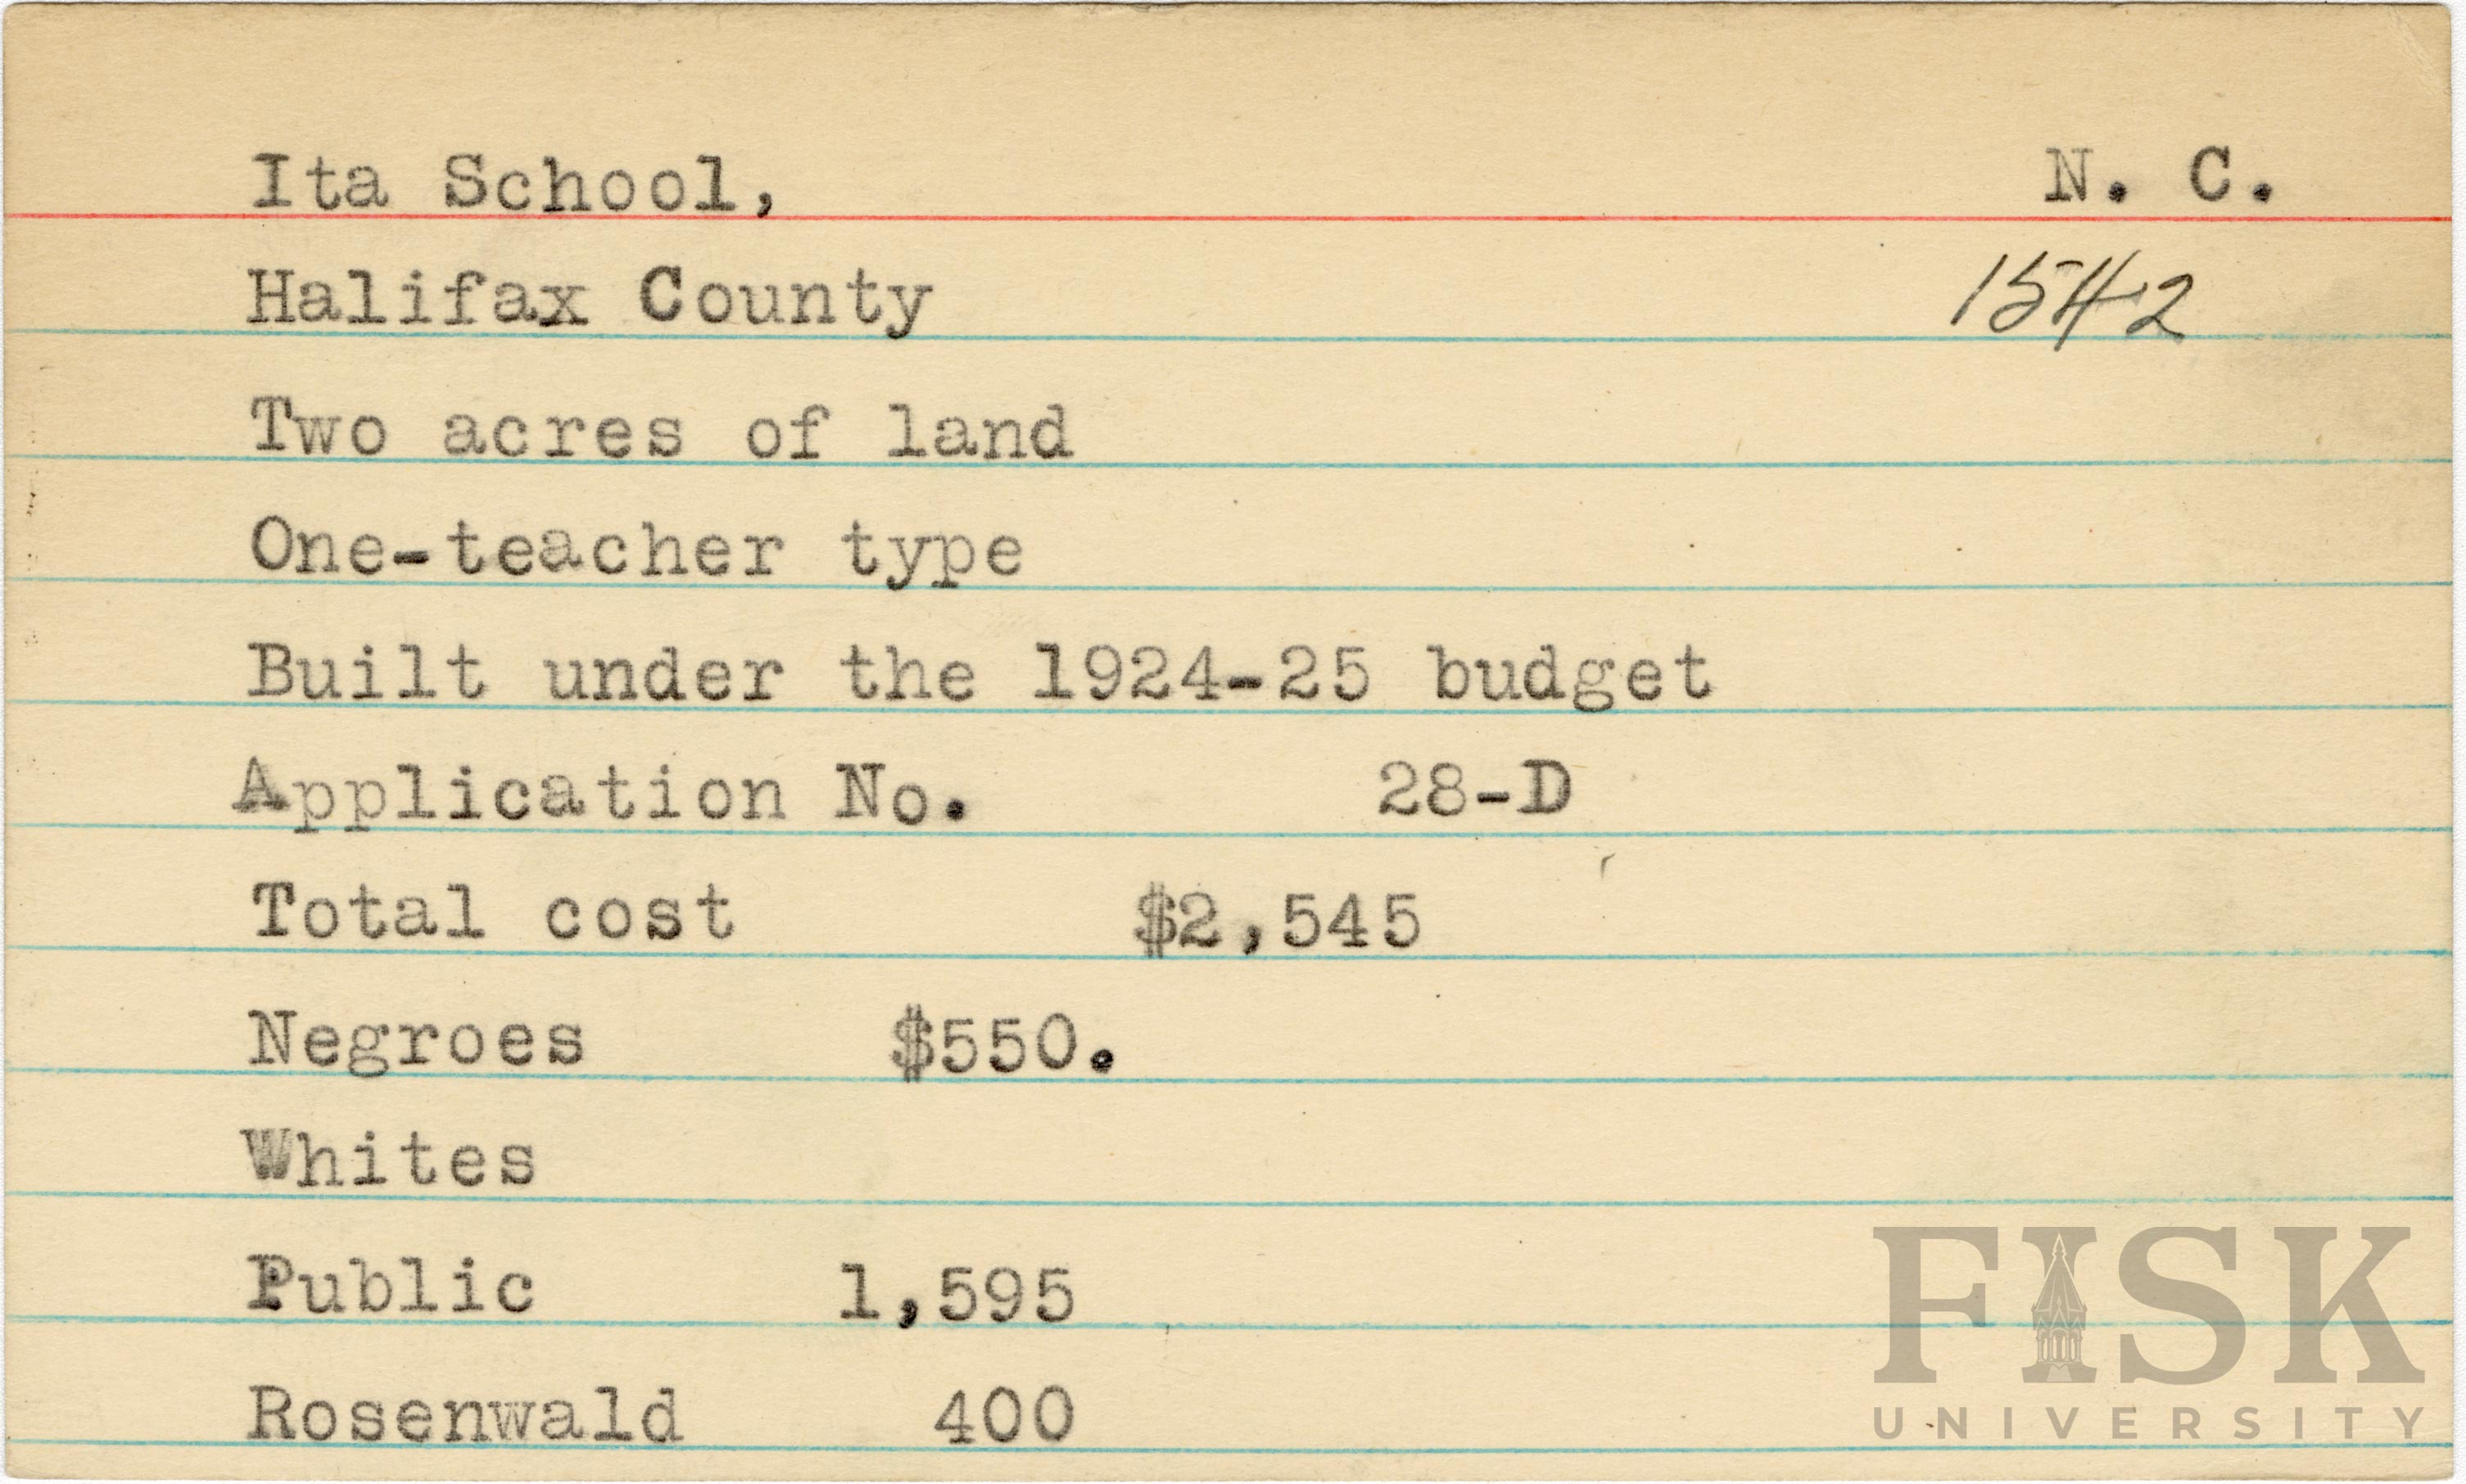 Ita School, N. C.
Halifax County 1542
Two acres of land
One-teacher type
Built under the 1924-25 budget
Application No. 28-D
Total cost $2,545
Negroes $550.
Whites
Public 1,595
Rosenwald 400
FISK
UNIVERSITY